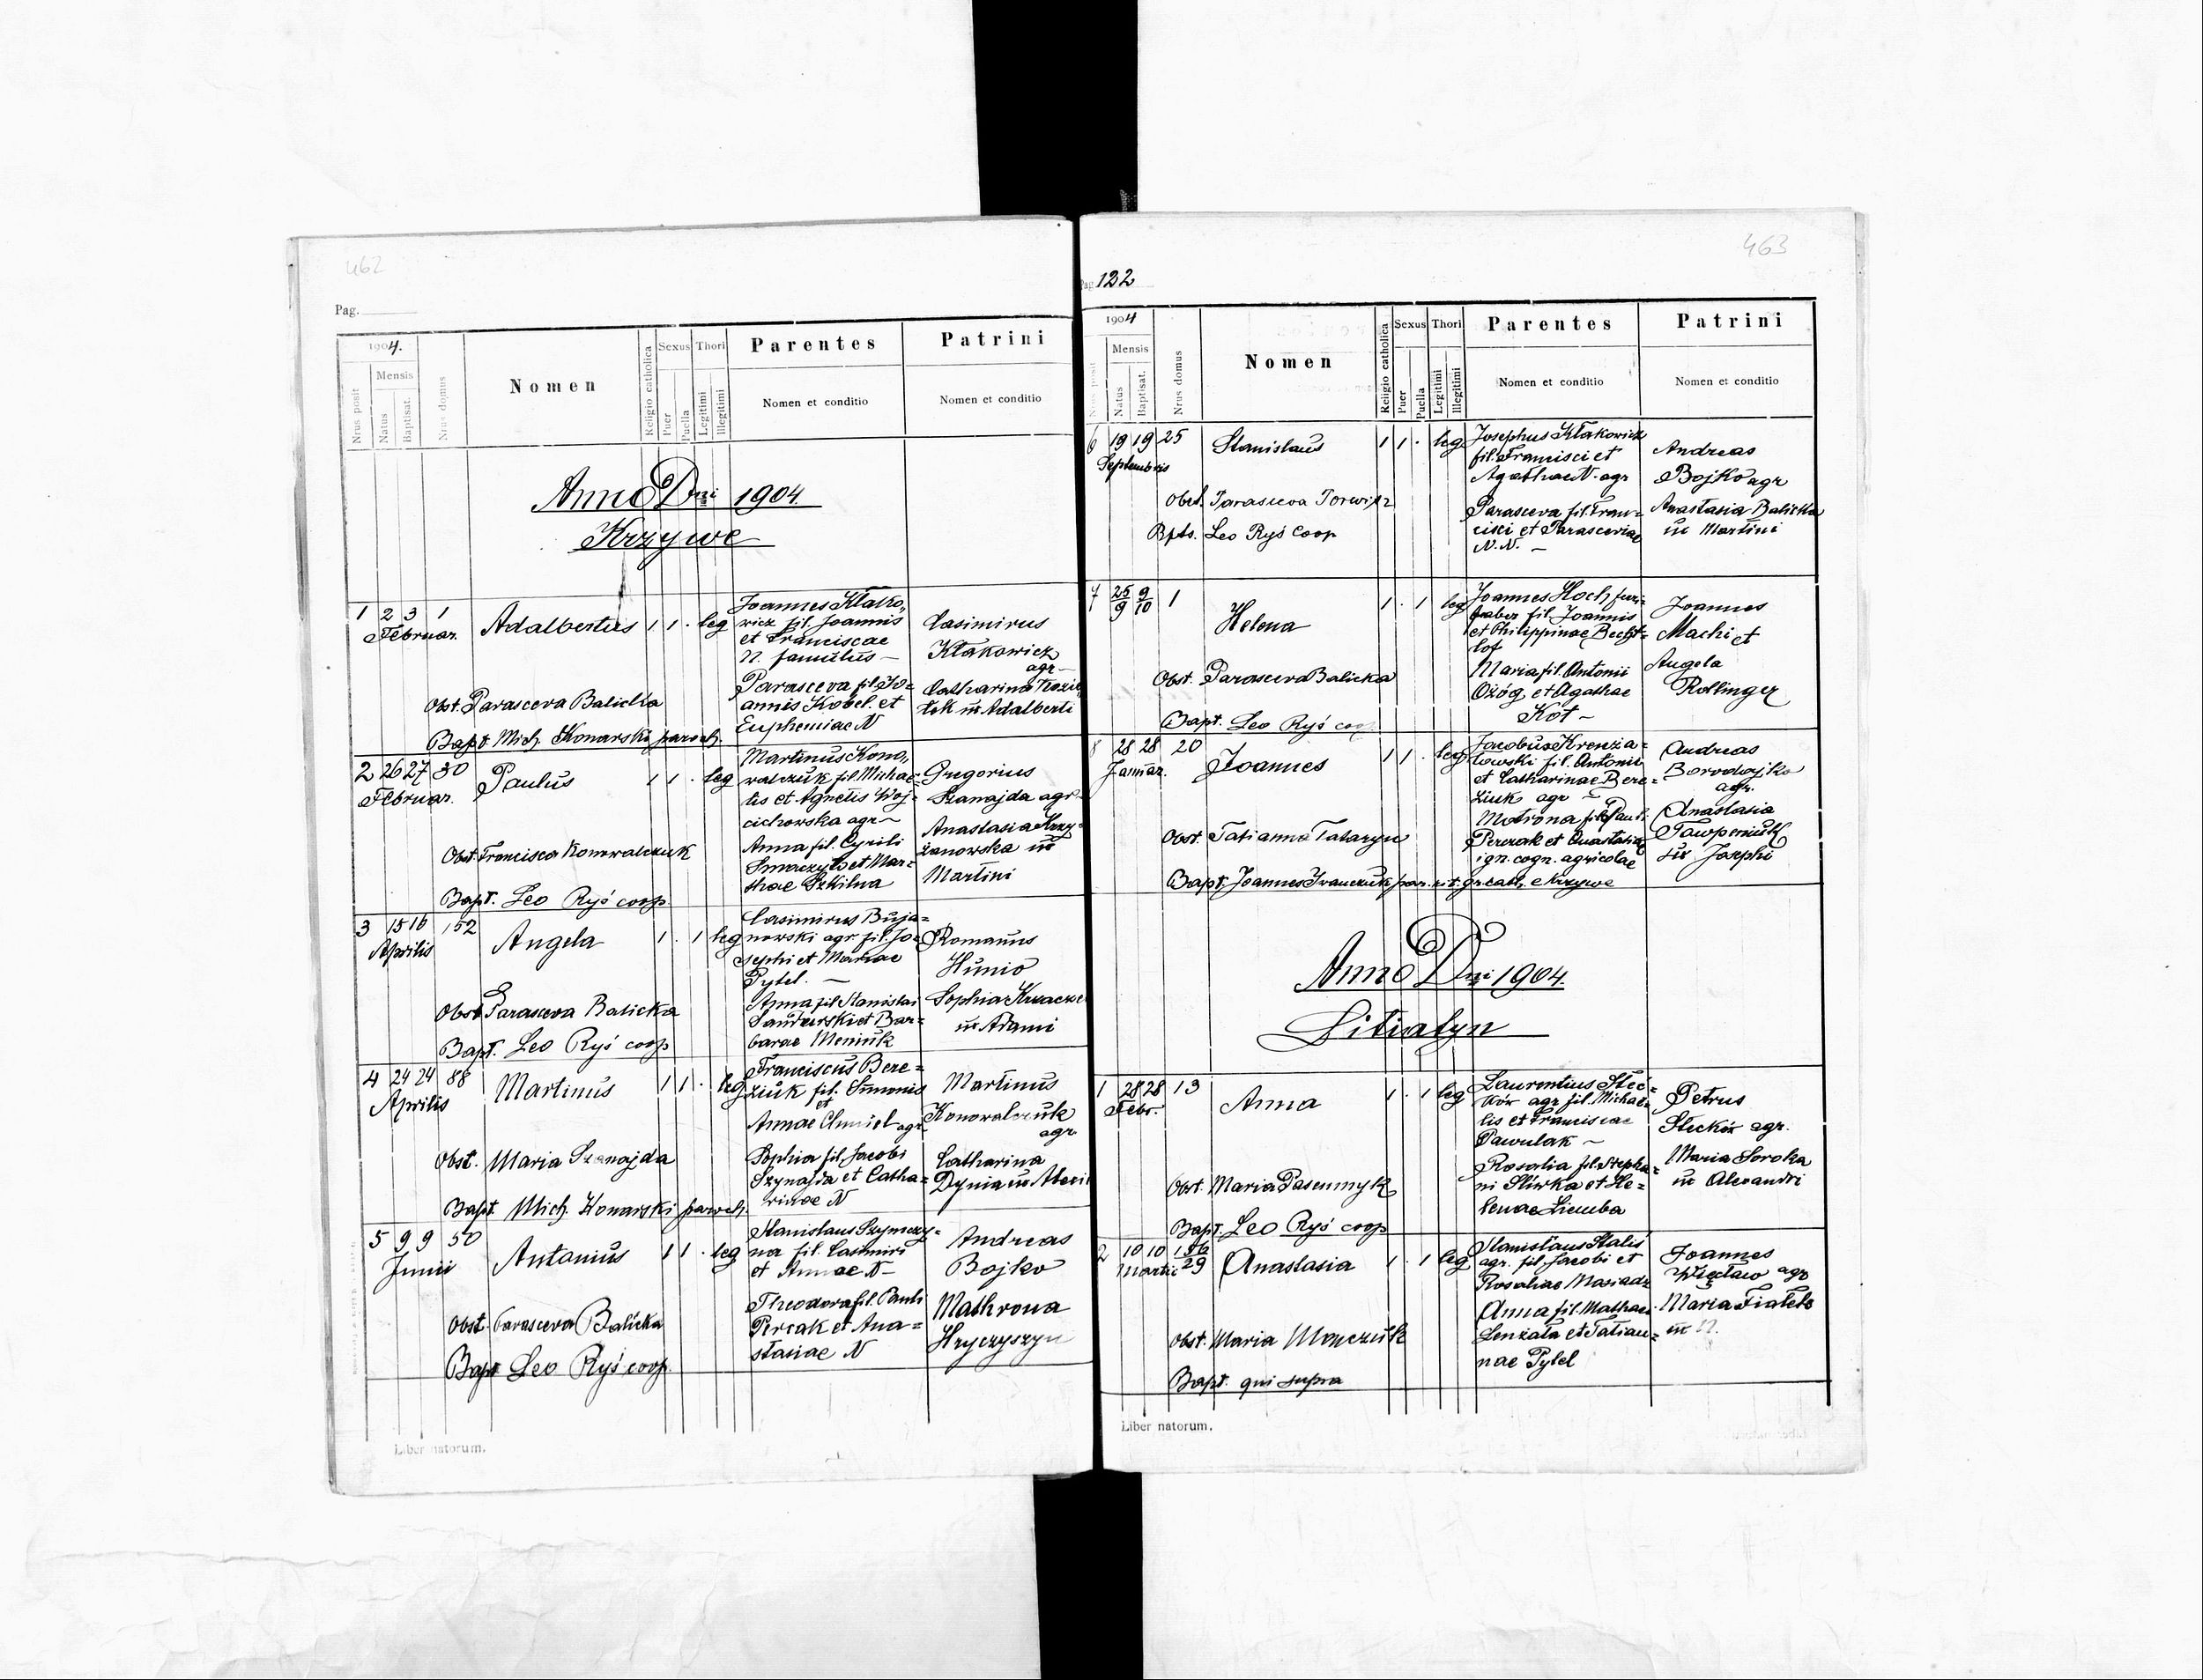 462
Pag.
1904.
Mensis
Nrus posit
Natus
Baptisat.
Nrus domus
Nomen
Religio catholica
Sexus
Puer
Puella
Thori
Legitimi
Illegitimi
Parentes
Nomen et conditio
Patrini
Nomen et conditio
Anno Dni 1904.
Krzywe
1 2 3 1
Februar.
Adalbertus 1 1 . leg
Joannes Kłako„
wicz fil. Joannis
et Franciscae
N. famulus —
Parasceva fil. Jo=
annis Kobel. et
Euphemiae N
Casimirus
Kłakowicz
agr —
Catharina
tek ux Adalberti
Obst. Parasceva Balicka
Bapt. Mich. Konarski paroch.
2 26 27 30
Februar.
Paulus 1 1 . leg
Martinus Kono„
walczuk fil. Michae=
lis et Agnetis Woj=
cichowska agr —
Anna fil. Cyrili
Smaczyło et Mar=
thae Szkilna
Gregorius
Szanajda agr
Anastasia Krzy=
żanowska ux
Martini
Obst. Francisca Konowalczuk
Bapt. Leo Ryś coop
3 15 16 152
Aprilis
Angela 1 . 1 leg
Casimirus Buja=
nowski agr fil. Jo=
sephi et Mariae
Pytel. —
Anna fil Stanislai
Sandurski et Bar=
barae Meniuk
Romanus
Hunio
Sophia
ux Adami
Obst Parasceva Balicka
Bapt. Leo Ryś coop
4 24 24 88
Aprilis
Martinus 1 1 . leg
Franciscus Bere=
ziuk fil. Simonis
et
Annae Chmiel agr
Sophia fil. Jacobi
Szynajda et Catha=
rinae N
Martinus
Konowalczuk
agr
Catharina
Dynia ux
Obst. Maria Szanajda
Bapt. Mich. Konarski paroch.
5 9 9 50
Junii
Antonius 1 1 . leg
Stanislaus Szymczy=
na fil. Casimiri
et Annae N —
Theodora fil. Pauli
Percak et Ana=
stasiae N
Andreas
Bojko
Mathrona
Hryczyszyn
Obst. Parasceva Balicka
Bapt Leo Ryś coop.
Liber natorum.
463
Pag. 122
1904
Mensis
Nrus posit
Natus
Baptisat.
Nrus domus
Nomen
Religio catholica
Sexus
Puer
Puella
Thori
Legitimi
Illegitimi
Parentes
Nomen et conditio
Patrini
Nomen et conditio
6 19 19 25
Septembris
Stanislaus 1 1 . leg
Josephus Kłakowicz
fil. Francisci et
Agathae N. agr
Parasceva fil. Fran=
cisci et Parasceviae
N.N. —
Andreas
Bojko agr
Anastasia Balicka
ux Martini
Obst. Parasceva
Bpts. Leo Ryś Coop
7 25/9 9/10 1
Helena 1 . 1 leg
Joannes Hoch
faber fil. Joannis
et Philippinae Becht=
lof
Maria fil. Antonii
Ożóg et Agathae
Kot —
Joannes
Machi et
Angela
Rollinger
Obst. Parasceva Balicka
Bapt. Leo Ryś coop
8 28 28 20
Januar.
Joannes 1 1 . leg
Jacobus Krenża=
łowski fil. Antonii
et Catharinae Bere=
ziuk agr —
Motrona fil. Pauli
Perczak et Anastasiae
ign. cogn. agricolae
Andreas
Borodajko
agr.
Anastasia
ux Josephi
Obst. Tatianna Tataryn
Bapt. Joannes Iwanczuk par. rit. gr. cath. e Krzywe
Anno Dni 1904.
Litiatyn
1 28 28 13
Febr.
Anna 1 . 1 leg
Laurentius Stec=
ków agr fil. Michae=
lis et Franciscae
Pawulak —
Rosalia fil. Stepha=
ni Śliwka et He=
lenae Ziemba
Petrus
Stecków agr.
Maria Soroka
ux Alexandri
Obst. Maria Pasemnyk
Bapt. Leo Ryś coop
2 10 10 29
Martii
Anastasia 1 . 1 leg
Stanislaus Stalis
agr. fil. Jacobi et
Rosaliae Masiadz
Anna fil. Mathaei
Lenżała et Tatian=
nae Pytel
Joannes
Więcław agr
Maria Fiałek
ux N.
Obst. Maria
Bapt. qui supra
Liber natorum.